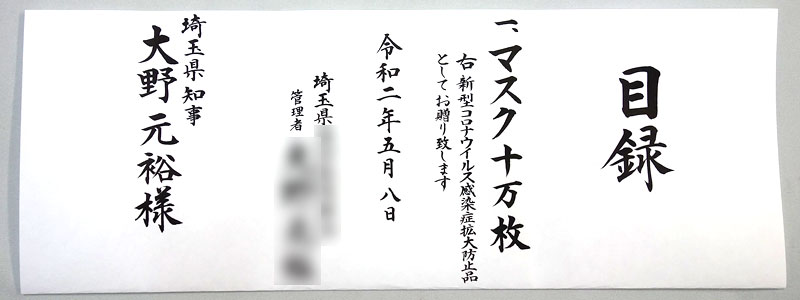 目録
一、マスク十万枚
右 新型コロナウイルス感染症拡大防止品
としてお贈り致します
令和二年五月八日
埼玉県
管理者
埼玉県知事
大野元裕様